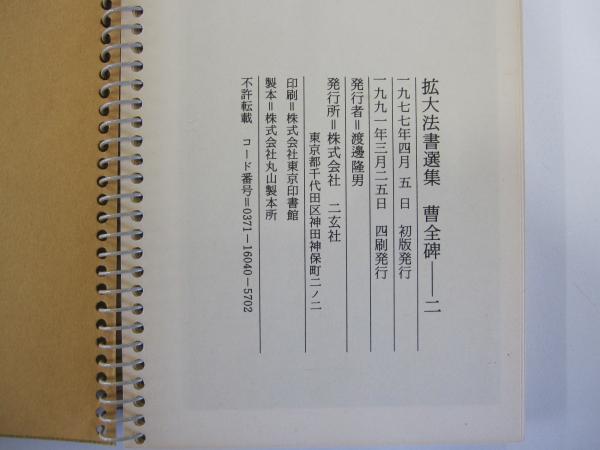 拡大法書選集　曹全碑──二
一九七七年四月　五　日　初版発行
一九九一年三月二五日　四刷発行
発行者＝渡邊隆男
発行所＝株式会社　二玄社
東京都千代田区神田神保町二ノ二
印刷＝株式会社東京印書館
製本＝株式会社丸山製本所
不許転載　コード番号＝0371－16040－5702